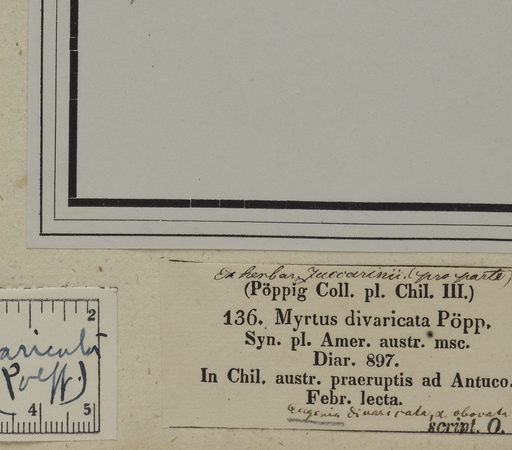 Ex herbar. Zuccarinii. (pro parte)
(Pöppig Coll. pl. Chil. III.)
136. Myrtus divaricata Pöpp.
Syn. pl. Amer. austr. msc.
Diar. 897.
In Chil. austr. praeruptis ad Antuco.
Febr. lecta.
Eugenia divaricata, α obovata
script. O.
2
(Poepp.)
4 5